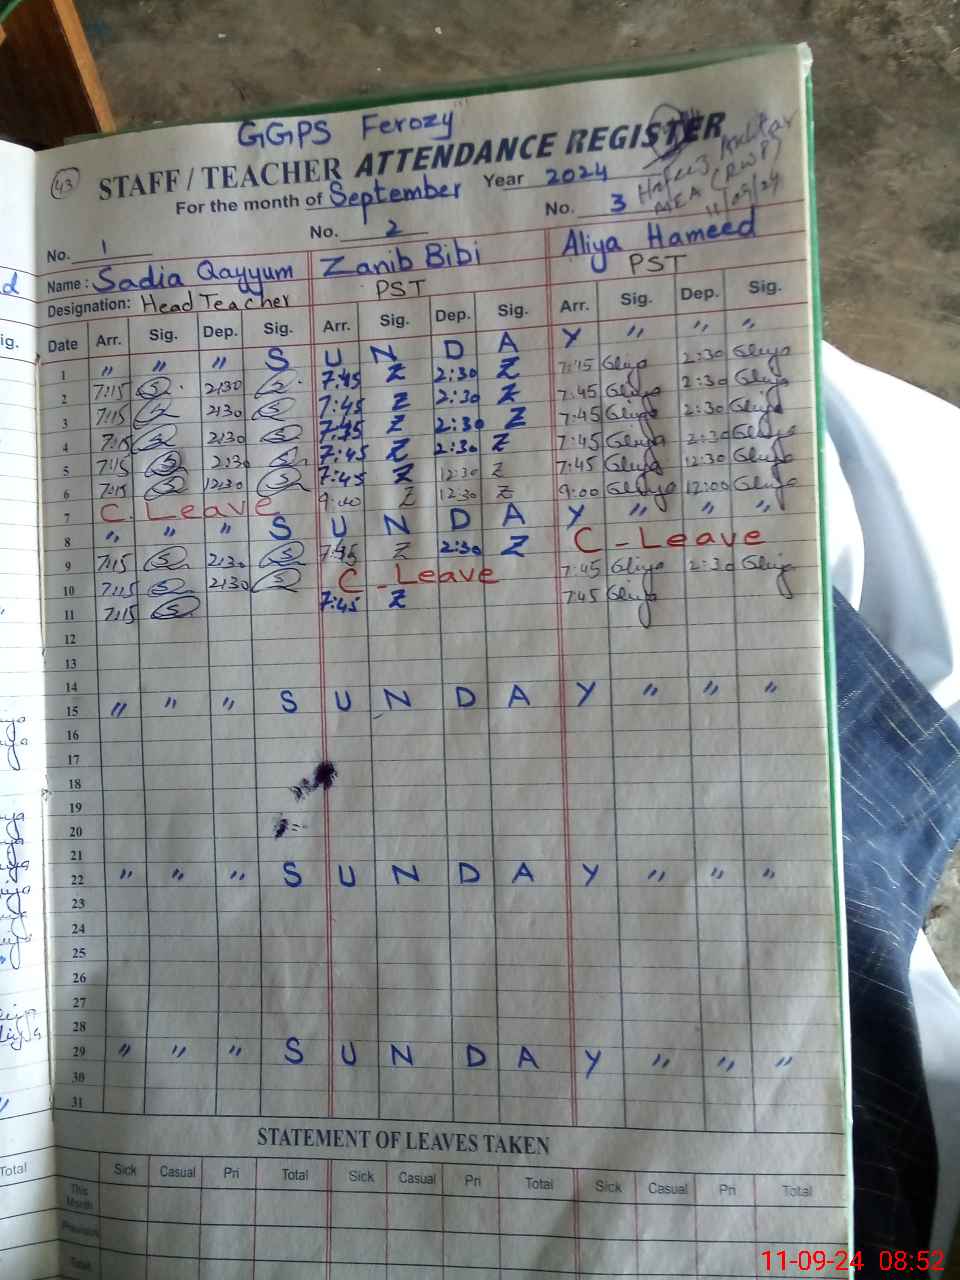 GGPS Ferozy
43
STAFF / TEACHER ATTENDANCE REGISTER
For the month of September Year 2024
MEA (RWP)
11/09/24
No. 1 No. 2 No. 3
Name : Sadia Qayyum Zanib Bibi Aliya Hameed
Designation: Head Teacher PST PST
Date Arr. Sig. Dep. Sig. Arr. Sig. Dep. Sig. Arr. Sig. Dep. Sig.
1 " " " S U N D A Y " " "
2 7:15 S 2:30 S 7:45 Z 2:30 Z 7:45 2:30
3 7:15 S 2:30 S 7:45 Z 2:30 Z 7:45 2:30
4 7:15 S 2:30 S 7:45 Z 2:30 Z 7:45 2:30
5 7:15 S 2:30 S 7:45 Z 2:30 Z 7:45 2:30
6 7:15 S 12:30 S 7:45 Z 12:30 Z 7:45 12:30
7 C. Leave 9:00 Z 12:30 Z 9:00 12:00
8 " " " S U N D A Y " " "
9 7:15 S 2:30 S 7:45 Z 2:30 Z C - Leave
10 7:15 S 2:30 S C - Leave 7:45 2:30
11 7:15 S 7:45 Z 7:45
12
13
14
15 " " " S U N D A Y " " "
16
17
18
19
20
21
22 " " " S U N D A Y " " "
23
24
25
26
27
28
29 " " " S U N D A Y " " "
30
31
STATEMENT OF LEAVES TAKEN
Sick Casual Pri Total Sick Casual Pri Total Sick Casual Pri Total
This Month
Previous
Total
Total
11-09-24 08:52